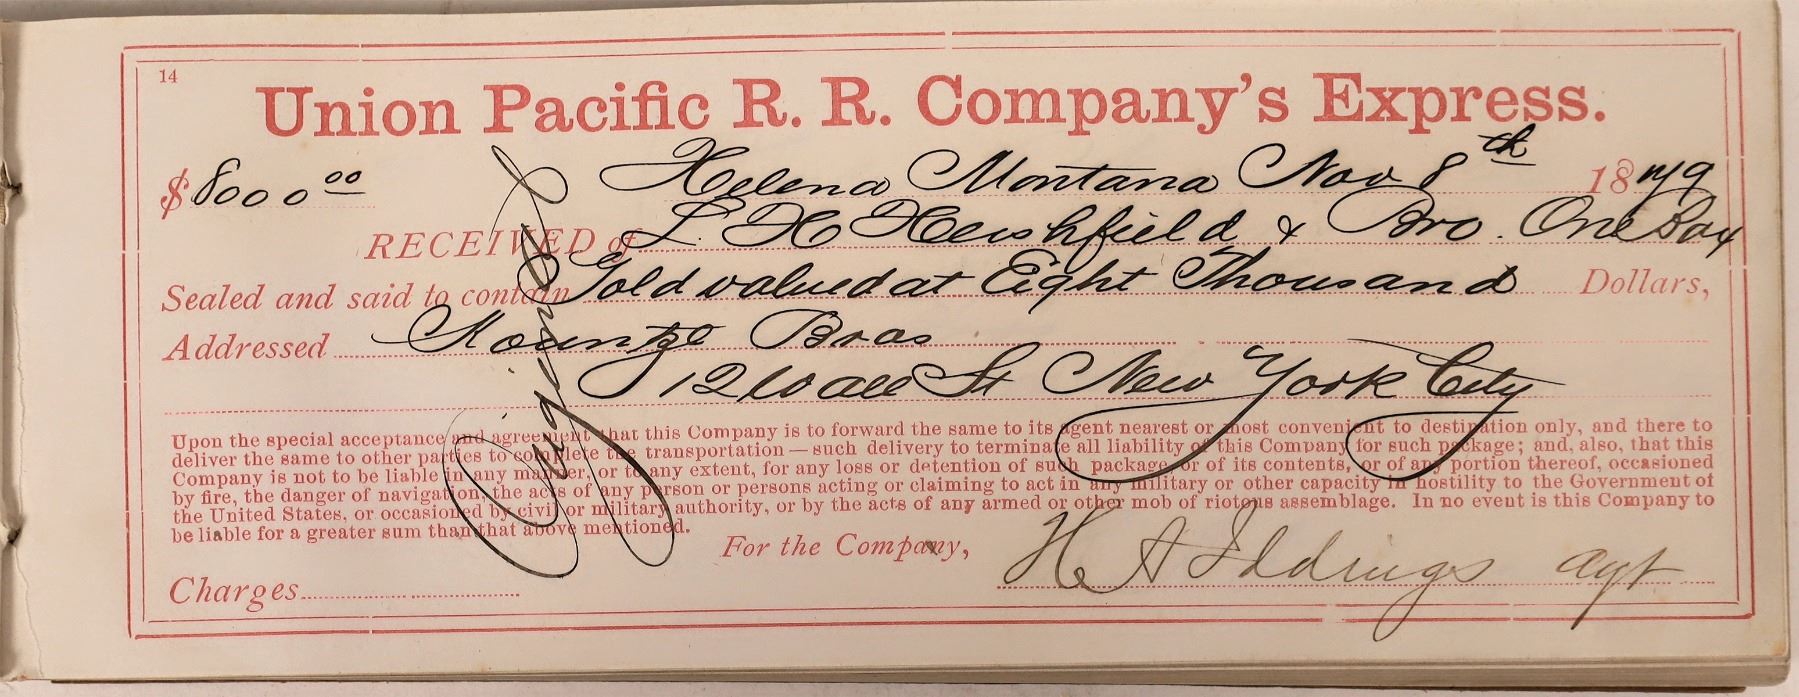 14
Union Pacific R. R. Company's Express.
$8000 00 Helena Montana Nov 8th 1879
RECEIVED of L. H Hershfield & Bro. One Box
Sealed and said to contain Gold valued at Eight Thousand Dollars,
Addressed Kountze Bros
12 Wall St New York City
Upon the special acceptance and agreement that this Company is to forward the same to its agent nearest or most convenient to destination only, and there to
deliver the same to other parties to complete the transportation — such delivery to terminate all liability of this Company for such package; and, also, that this
Company is not to be liable in any manner, or to any extent, for any loss or detention of such package or of its contents, or of any portion thereof, occasioned
by fire, the danger of navigation, the acts of any person or persons acting or claiming to act in any military or other capacity in hostility to the Government of
the United States, or occasioned by civil or military authority, or by the acts of any armed or other mob of riotous assemblage. In no event is this Company to
be liable for a greater sum than that above mentioned.
For the Company, H A Iddings agt
Charges
Original